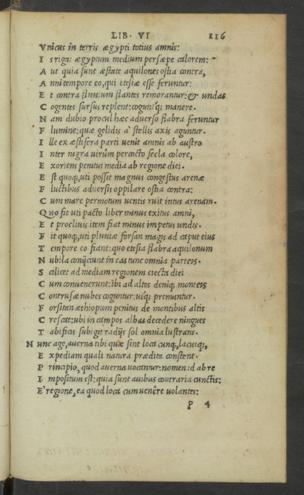 LIB. VI 116
Vnicus in terris ægypti totius amnis:
I s rigat ægyptum medium persæpe calorem:
A ut quia sunt æstate aquilones ostia contra,
A nni tempore eo, qui etesiæ esse feruntur:
E t contra fluuium flantes remorantur: & undas
C ogentes sursus replent: coguntq; manere.
N am dubio procul hæc aduerso flabra feruntur
F lumine: quæ gelidis a' stellis axis aguntur.
I lle ex æstifera parti uenit amnis ab austro
I nter nigra uirûm percocto secla colore,
E xoriens penitus media ab regione diei.
E st quoq; uti possit magnus congestus arenæ
F luctibus aduersis oppilare ostia contra:
C um mare permotum uentis ruit intus arenam.
Q uo fit uti pacto liber minus exitus amni,
E t procliuis item fiat minus impetus undis.
F it quoq; uti pluuiæ forsan magis ad caput eius
T empore eo fiant: quo etesia flabra aquilonum
N ubila coniiciunt in eas tunc omnia parteis.
S cilicet ad mediam regionem eiecta diei
C um conuenerunt: ibi ad altos deniq; monteis
C ontrusæ nubes coguntur: uiq; premuntur.
F orsitan æthiopum penitus de montibus altis
C rescat: ubi in campos albas decedere ningues
T abificis subigit radiis sol omnia lustrans.
N unc age, auerna tibi quæ sint loca cunq; lacusq;,
E xpediam: quali natura prædita constent.
P rincipio, quod auerna uocantur: nomen id ab re
I mpositum est: quia sunt auibus contraria cunctis:
E' regione, ea quod loca cum uenêre uolantes:
P 4